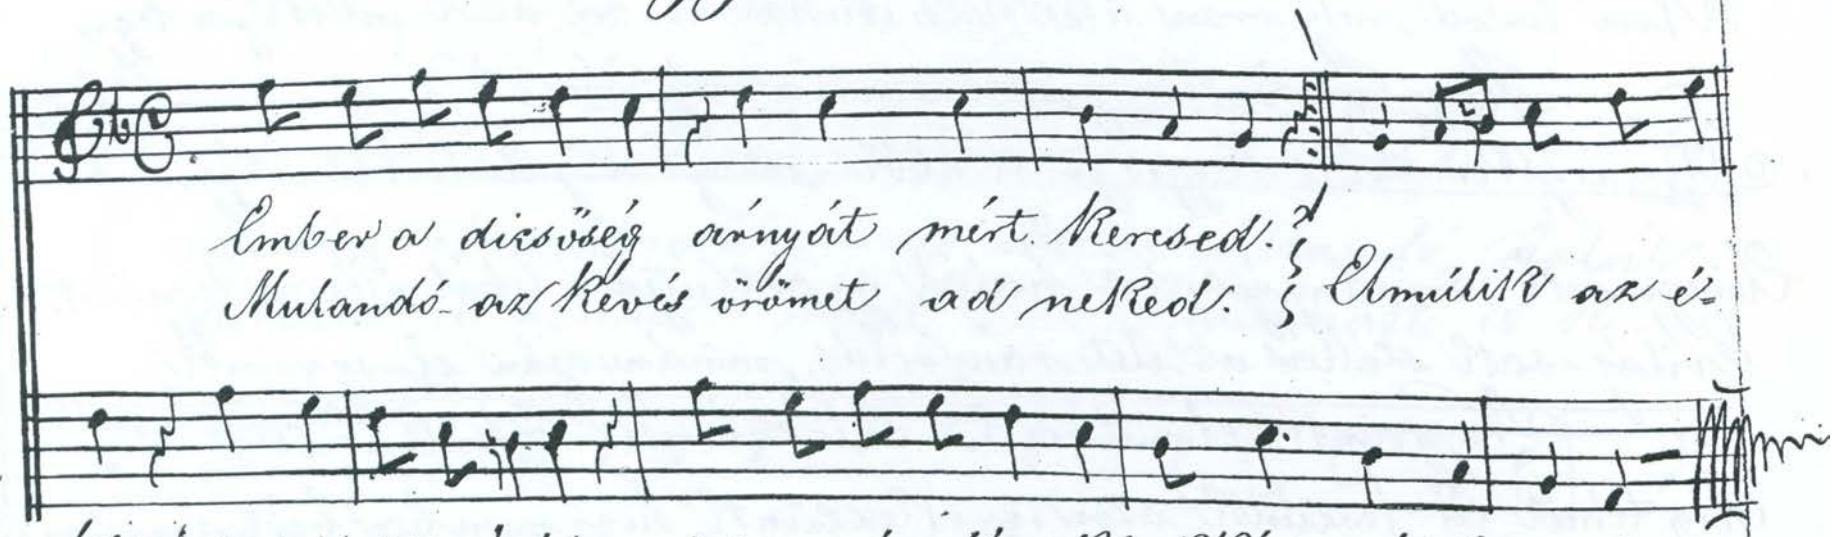 Ember a dicsőség árnyát mért keresed.?
Mulandó- az kevés örömet ad neked.
Elmúlik az é-